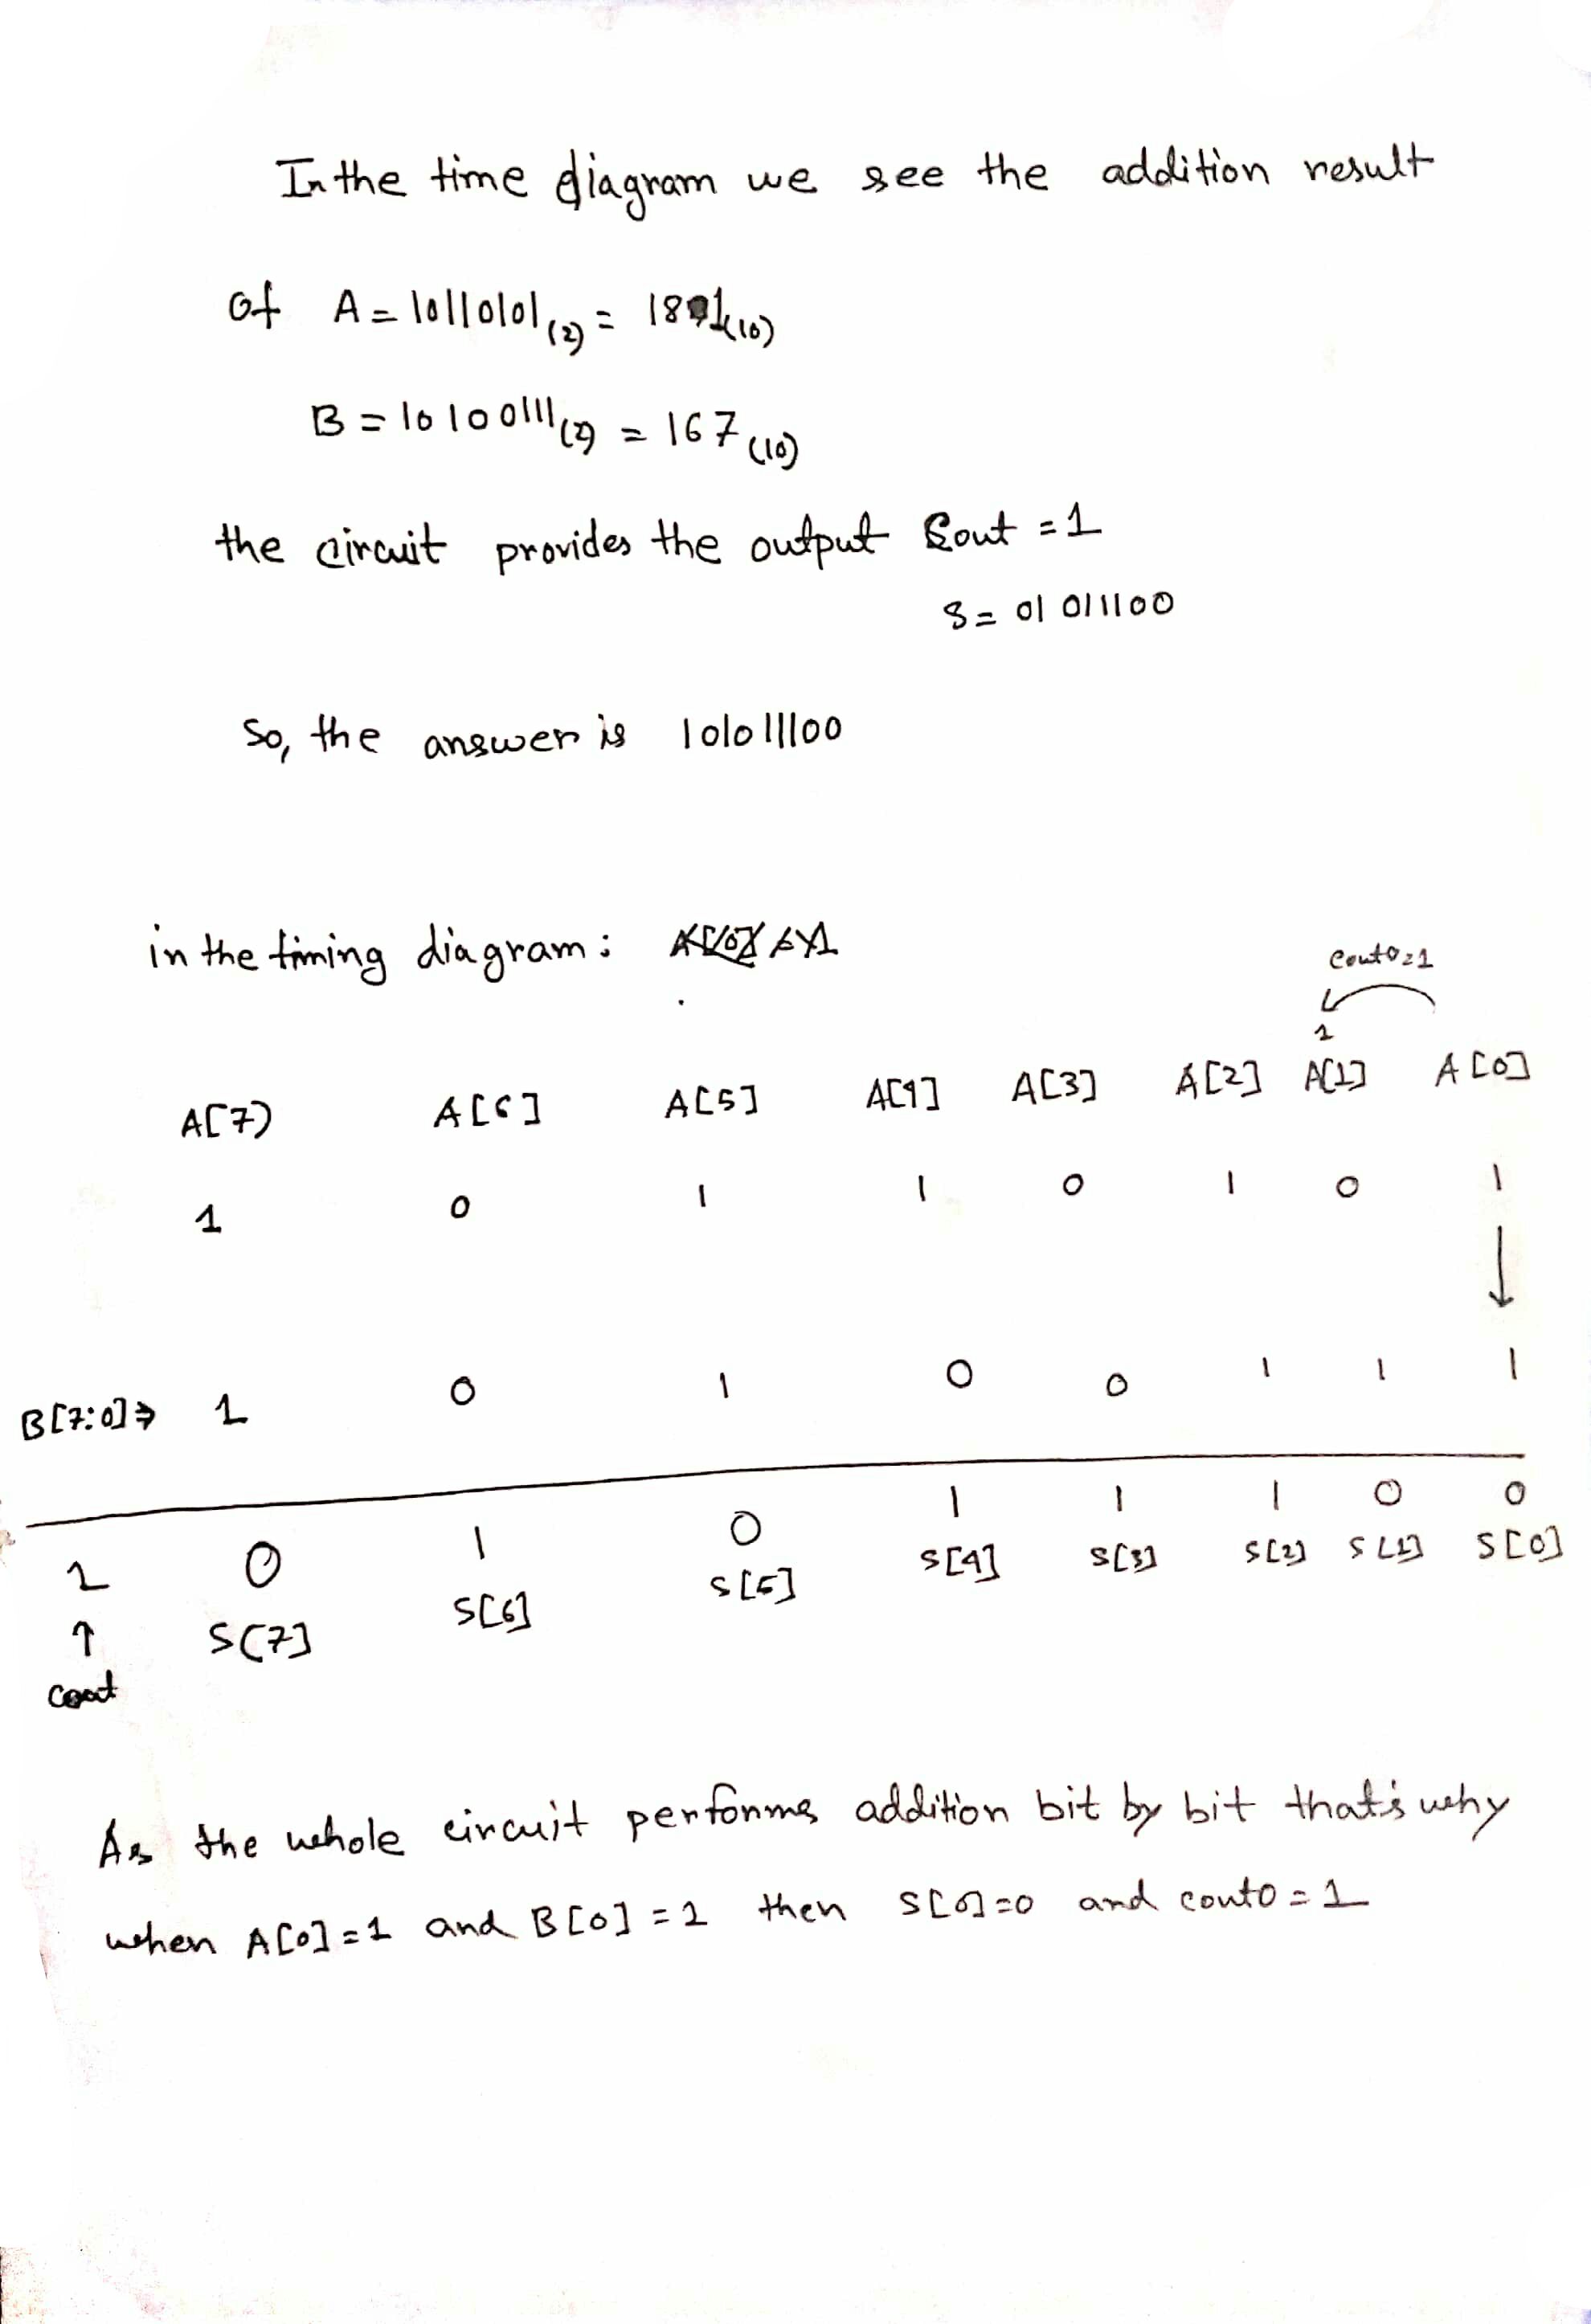 In the time diagram we see the addition result
of A = 10110101(2) = 181(10)
B = 10100111(2) = 167(10)
the circuit provides the output Cout = 1
S = 01011100
So, the answer is 101011100
in the timing diagram :
Cout0=1
1
A[7] A[6] A[5] A[4] A[3] A[2] A[1] A[0]
1 0 1 1 0 1 0 1
↓
B[7:0]⇒ 1 0 1 0 0 1 1 1
1 0 1 0 1 1 1 0 0
↑ S[7] S[6] S[5] S[4] S[3] S[2] S[1] S[0]
cout
As the whole circuit performs addition bit by bit that's why
when A[0]=1 and B[0]=1 then S[0]=0 and cout0=1